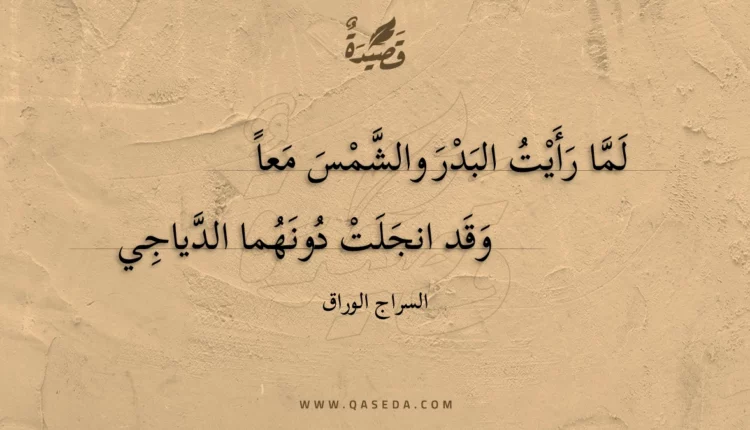 قَصِيْدَةٌ
لَمَّا رَأَيْتُ البَدْرَ والشَّمْسَ مَعاً
وَقَد انجَلَتْ دُونَهُما الدَّياجِي
السراج الوراق
WWW.QASEDA.COM